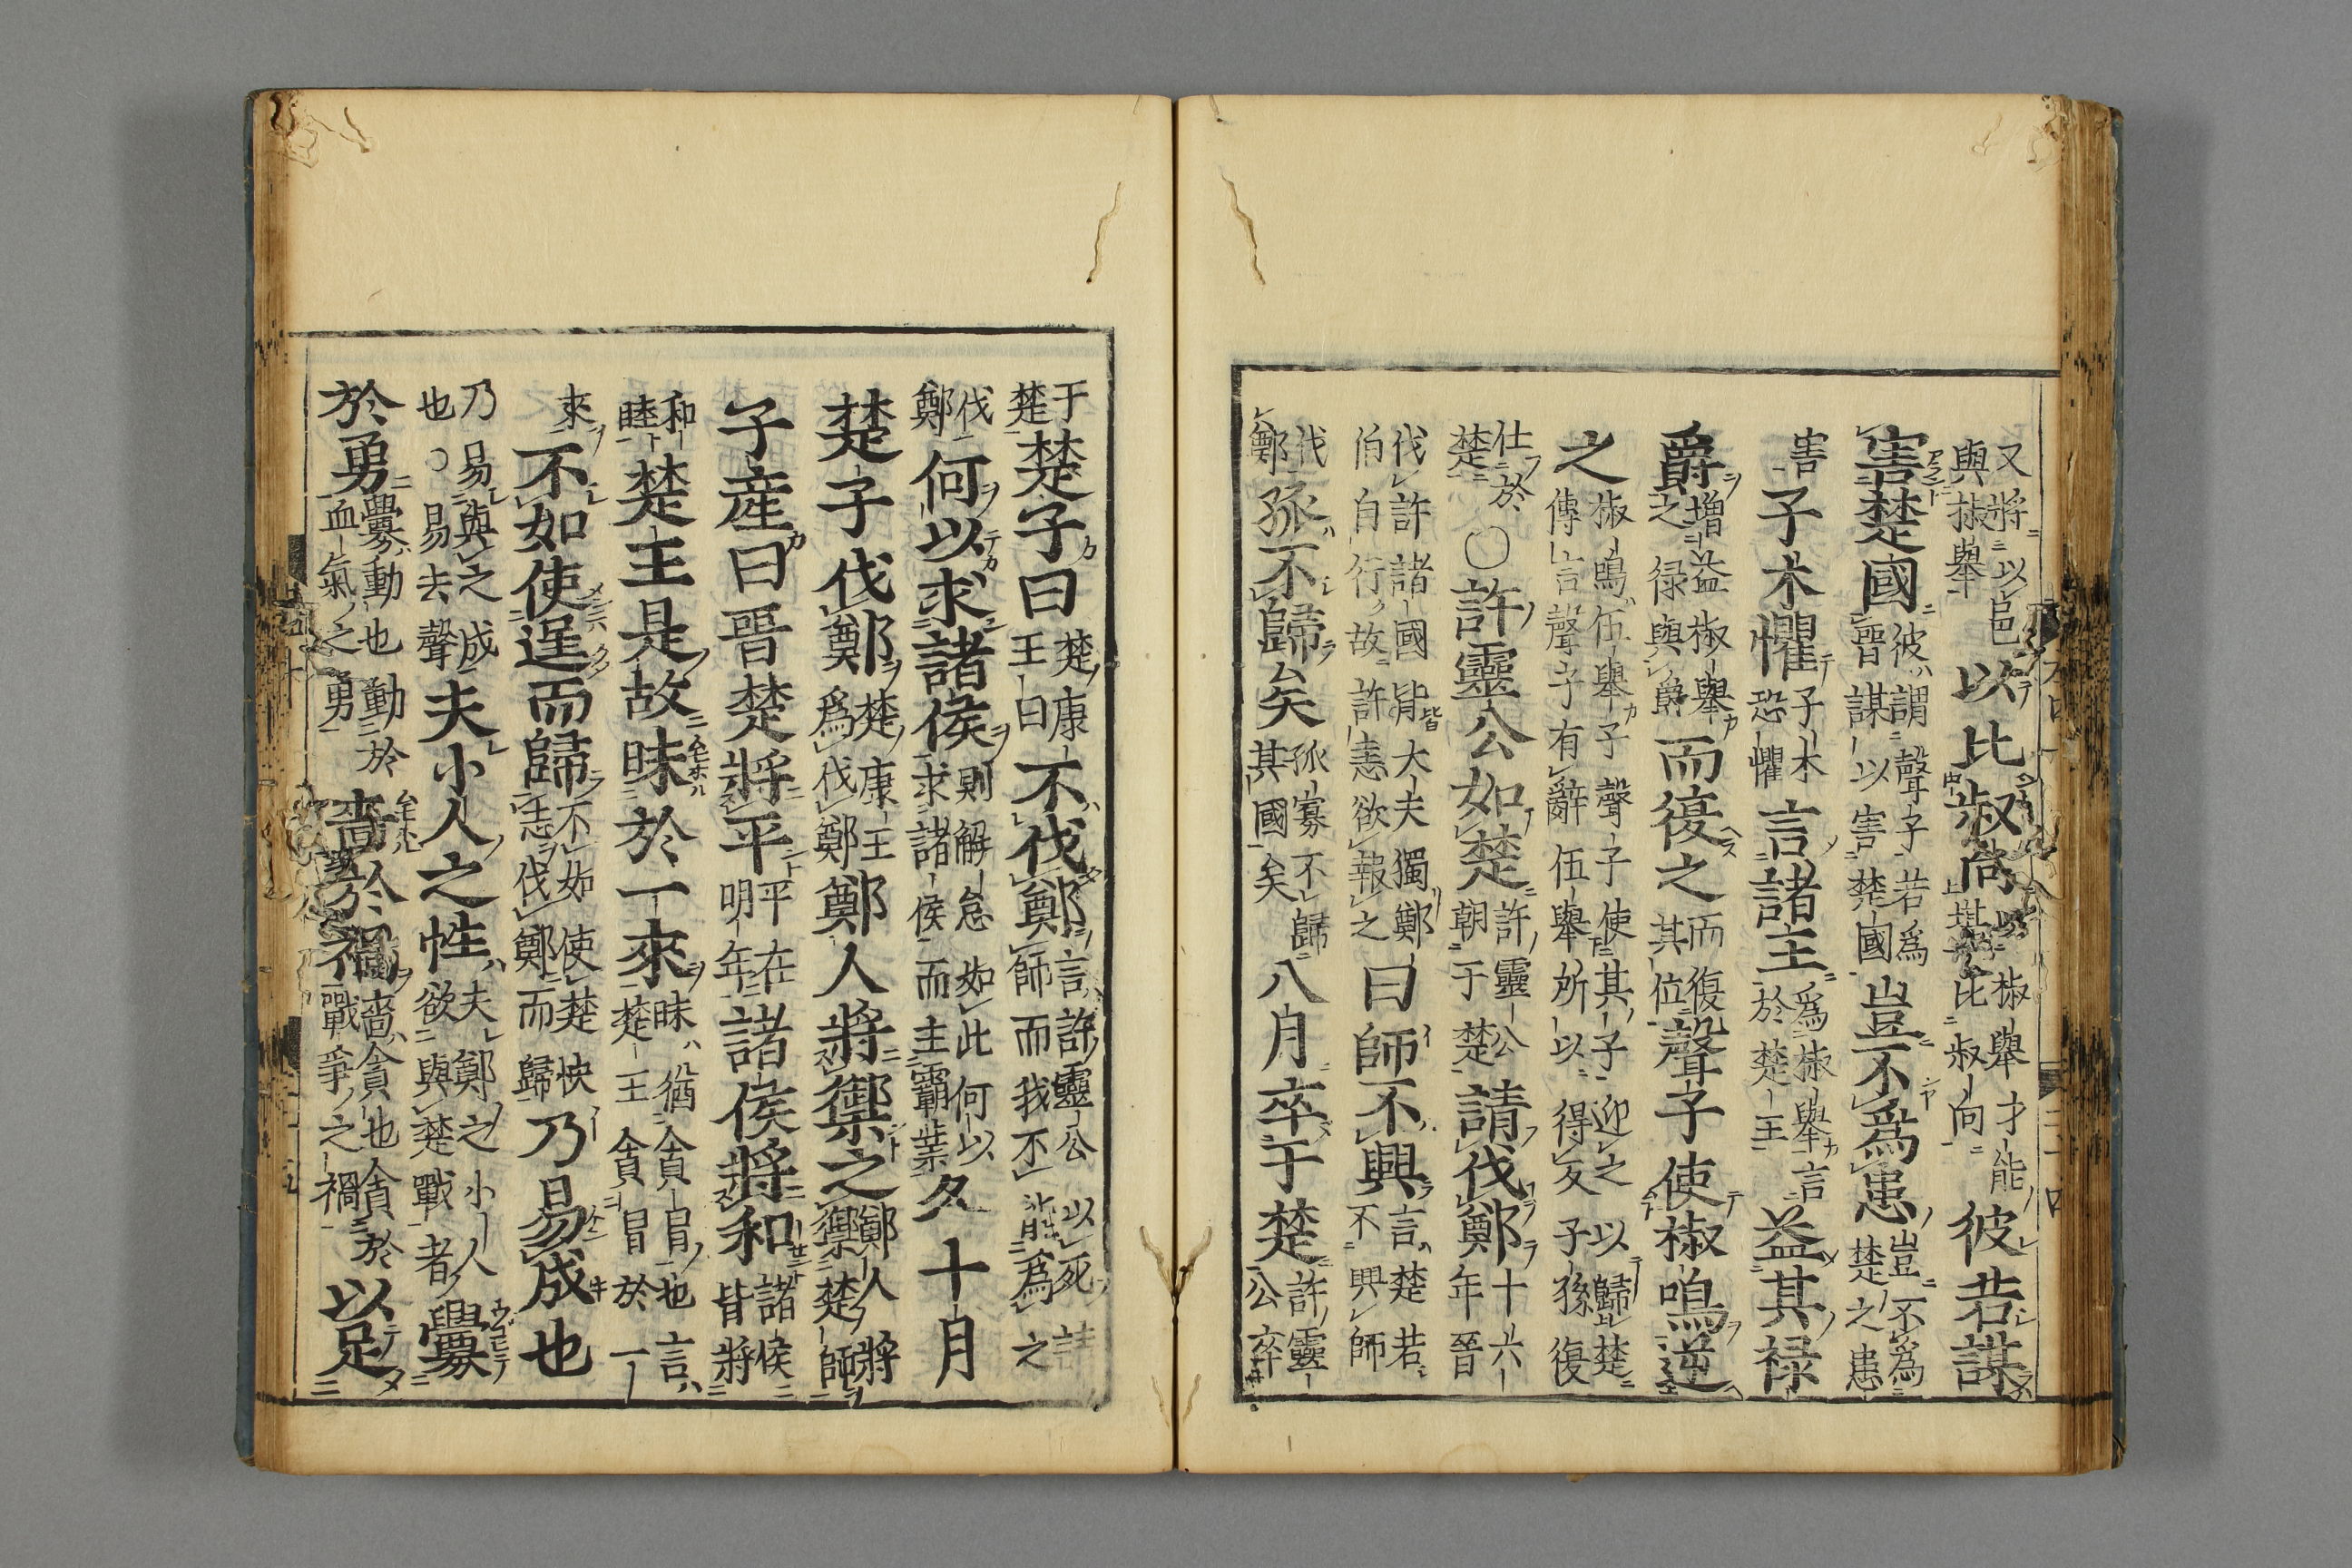 又將以邑與椒舉以比叔向以椒舉才能比叔向彼若謀
害楚國彼謂聲子若爲晉謀以害楚國豈不爲患豈不爲楚之患
害子木懼子木恐懼言諸王爲椒舉言於楚王益其祿
爵增益椒舉之祿與爵而復之而復其位聲子使椒鳴逆
之椒鳴伍舉子聲子使其子迎之以歸楚傳言聲子有辭伍舉所以得反子孫復
仕於楚○許靈公如楚許靈公朝于楚請伐鄭十六年晉
伐許諸國皆大夫獨鄭伯自行故許恚欲報之曰師不興言楚若不興師
伐鄭孤不歸矣孤寡不歸其國矣八月卒于楚許靈公卒
于楚楚子曰楚康王曰不伐鄭言許靈公以死請師而我不爲之
伐鄭何以求諸侯則解怠如此何以求諸侯而主霸業冬十月
楚子伐鄭楚康王爲伐鄭鄭人將禦之鄭人將禦楚師
子產曰晉楚將平平在明年諸侯將和諸侯皆將
和睦楚王是故昧於一來昧猶貪冒也言楚王貪冒於一
來不如使逞而歸不如使楚快志伐鄭而歸乃易成也
乃易與之成也○易去聲夫小人之性夫鄭之小人欲與楚戰者釁
於勇釁動也動於血氣之勇嗇於禍嗇貪也貪於戰爭之禍以足